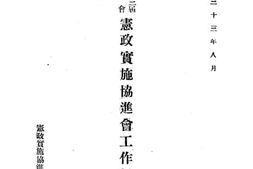 二十三年八月
二屆
會
憲政實施協進會工作
憲政實施協進